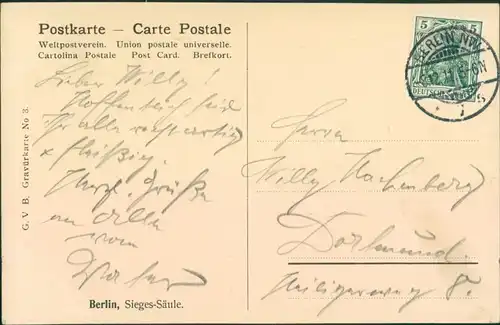 Postkarte – Carte Postale
Weltpostverein. Union postale universelle.
Cartolina Postale Post Card. Brefkort.
Lieber Willy!
Hoffentlich seid
Ihr alle recht artig
x fleißig.
Herzl. Grüße
an alle
vom
Berlin, Sieges-Säule.
G. V. B. Gravürkarte No 3.
5 5
BERLIN N.W.
Herrn
Willy Hachenberg
Dortmund.
Heiligerweg 8.